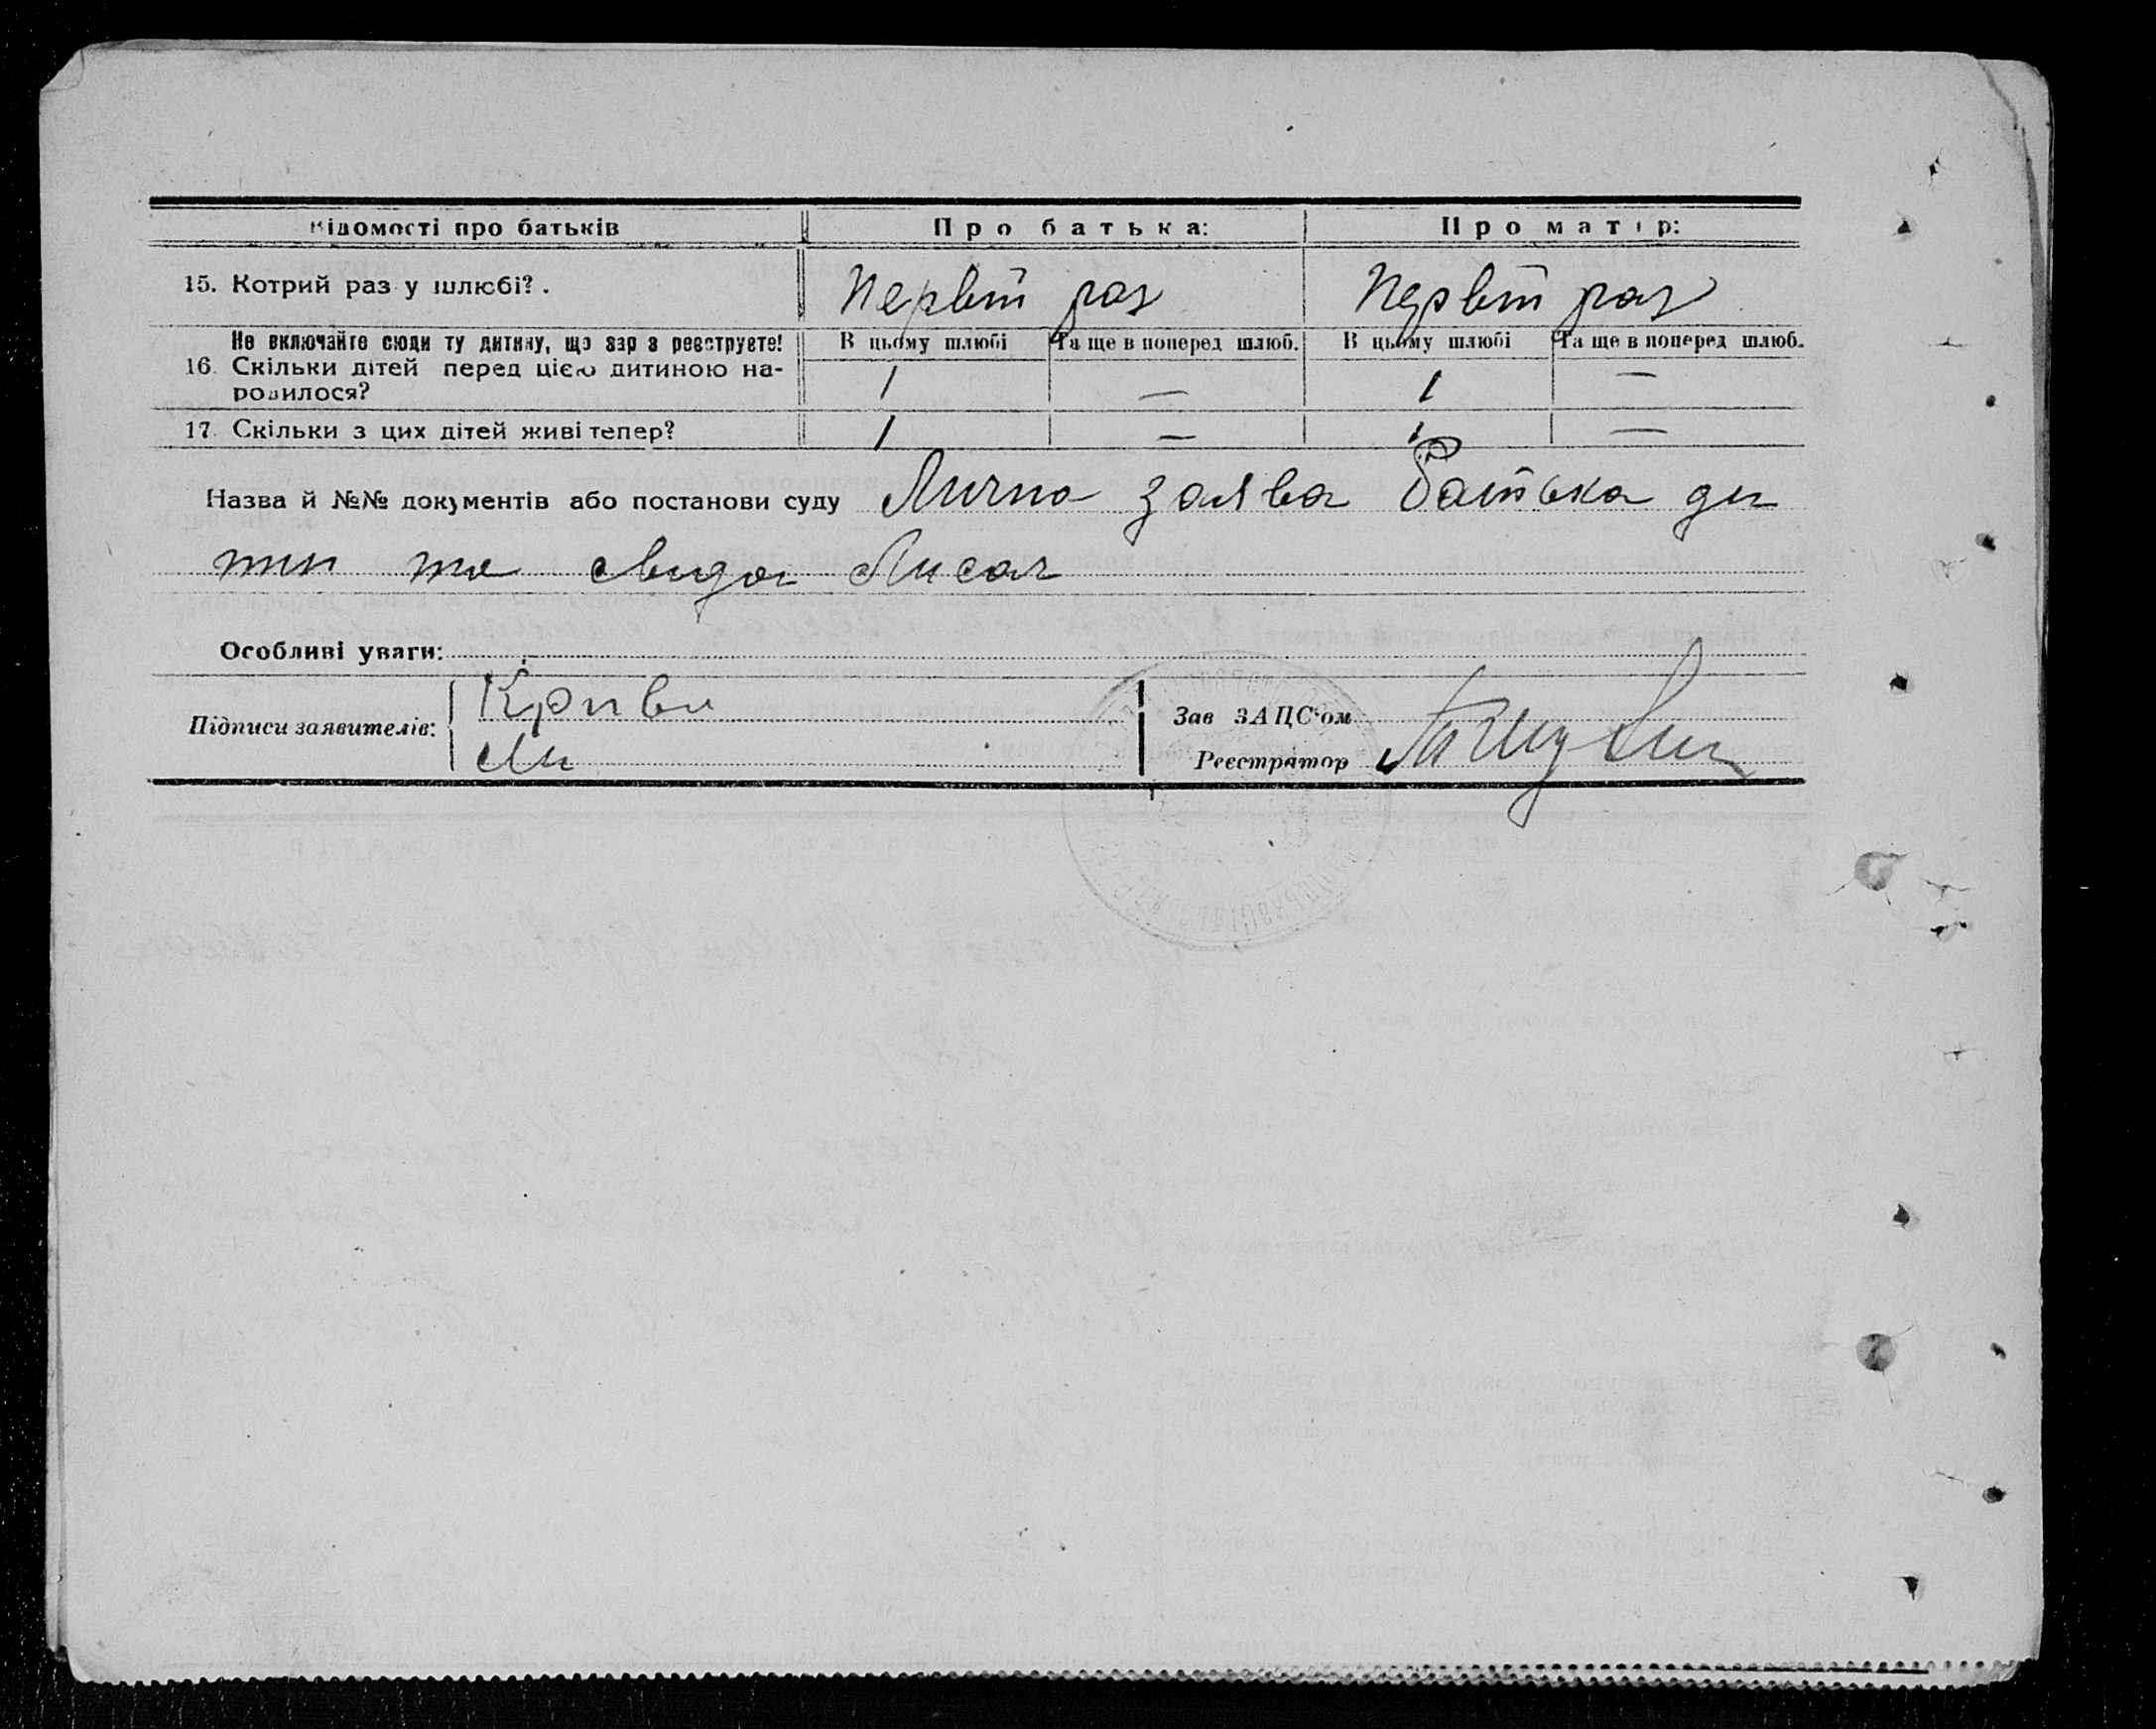 Відомості про батьків Про батька: Про матір:
15. Котрий раз у шлюбі?. Первый раз Первый раз
Не включайте сюди ту дитину, що зар з реєструєте! В цьому шлюбі Та ще в поперед шлюб. В цьому шлюбі Та ще в поперед шлюб.
16. Скільки дітей перед цією дитиною на-
родилося? 1 — 1 —
17. Скільки з цих дітей живі тепер? 1 — 1 —
Назва й №№ документів або постанови суду Лична заява батька ди
тин та свидок
Особливі уваги:
Підписи заявителів: Криви
Зав ЗАЦС'ом
Реєстратор